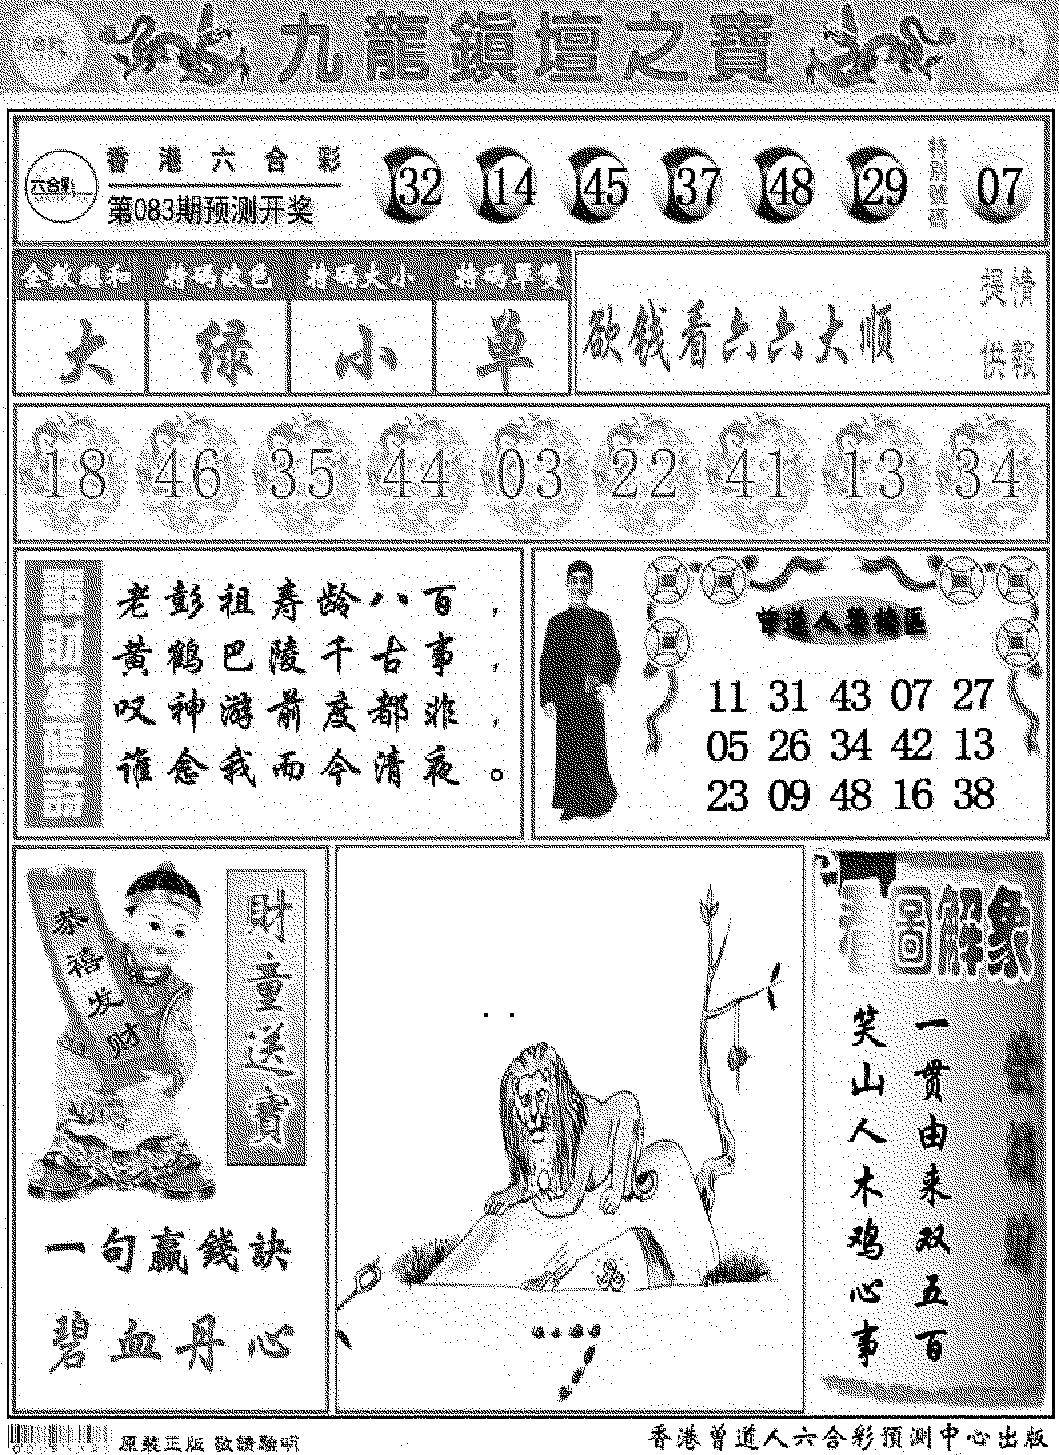 九龍鎮壇之寶
六合彩
香港六合彩
第083期预测开奖
32 14 45 37 48 29
特別號碼
07
全数總和 特码波色 特码大小 特码单雙
大 绿 小 单
欲钱看六六大顺
提情
供報
18 46 35 44 03 22 41 13 34
老彭祖寿龄八百，
黄鹤巴陵千古事，
叹神游前度都非，
谁念我而今清夜。
11 31 43 07 27
05 26 34 42 13
23 09 48 16 38
恭禧发财
財童送寳
一句贏錢訣
碧血丹心
圖解象
一贯由来双五百
笑山人木鸡心事
原裝正版 敬請驗明
香港曾道人六合彩預測中心出版